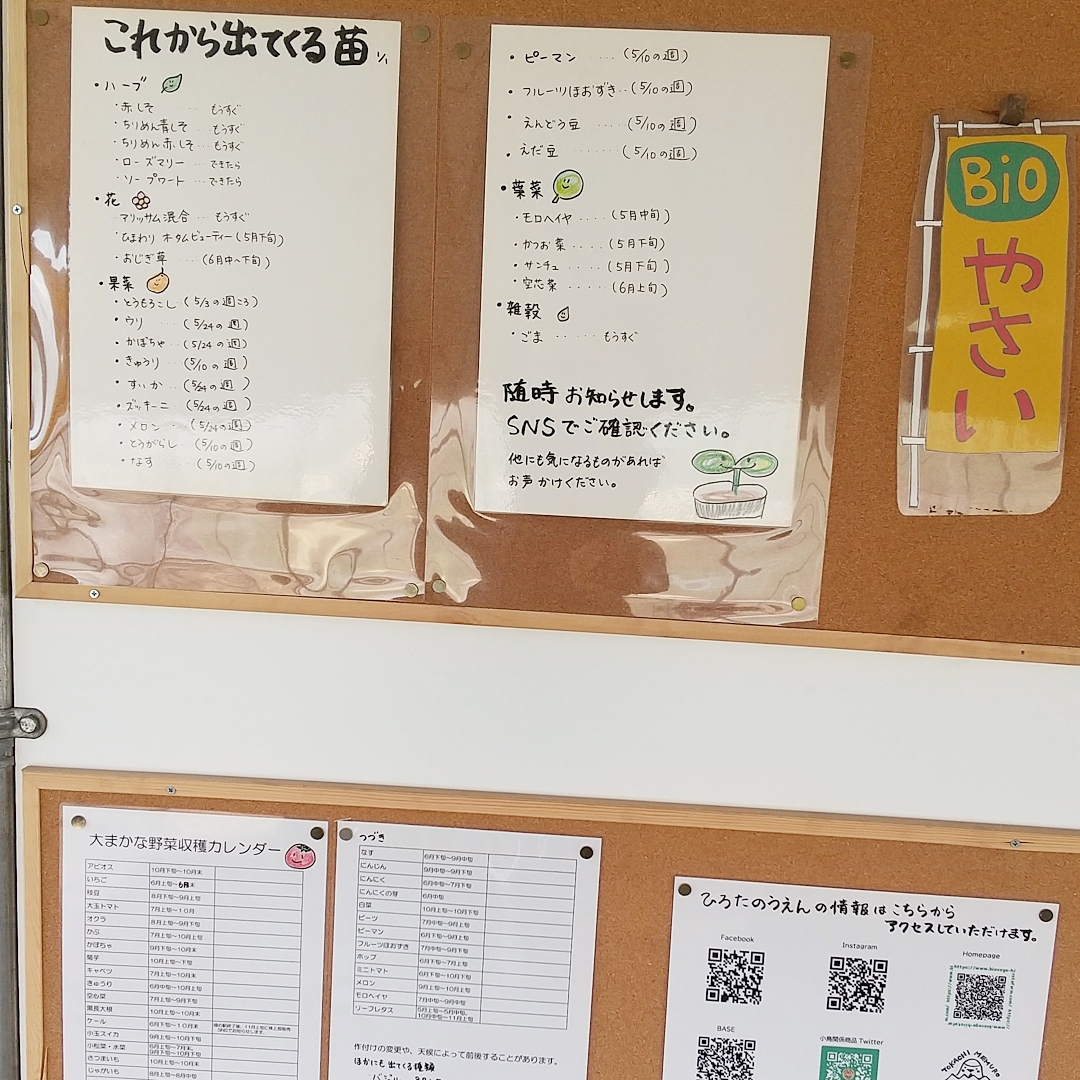 これから出てくる苗 1/1
・ハーブ
・赤しそ … もうすぐ
・ちりめん青しそ … もうすぐ
・ちりめん赤しそ … もうすぐ
・ローズマリー … できたら
・ソープワート … できたら
・花
マリッサム混合 … もうすぐ
・ひまわり ホタムビューティー(5月下旬)
・おじぎ草 … (6月中〜下旬)
・果菜
・とうもろこし (5/3の週ころ)
・ウリ … (5/24の週)
・かぼちゃ … (5/24の週)
・きゅうり … (5/10の週)
・すいか … (5/24の週)
・ズッキーニ (5/24の週)
・メロン … (5/24の週)
・とうがらし … (5/10の週)
・なす (5/10の週)
・ピーマン … (5/10の週)
・フルーツほおずき … (5/10の週)
・えんどう豆 … (5/10の週)
・えだ豆 … (5/10の週)
・葉菜
・モロヘイヤ … (5月中旬)
・かつお菜 … (5月下旬)
・サンチュ … (5月下旬)
・空芯菜 … (6月上旬)
・雑穀
・ごま … もうすぐ
随時お知らせします。
SNSでご確認ください。
他にも気になるものがあれば
お声かけください。
Bio
やさい
大まかな野菜収穫カレンダー
アピオス 10月下旬〜10月末
いちご 6月上旬〜6月末
枝豆 8月下旬〜9月上旬
大玉トマト 7月上旬〜10月
オクラ 8月上旬〜9月下旬
かぶ 7月上旬〜10月上旬
かぼちゃ 9月下旬〜10月末
菊芋 10月上旬〜下旬
キャベツ 7月上旬〜10月末
きゅうり 6月中旬〜10月末
空心菜 7月上旬〜9月下旬
黒長大根 10月上旬〜10月末
ケール 6月下旬〜10月末
小玉スイカ 9月上旬〜10月下旬
小松菜・水菜 6月上旬〜7月末、9月下旬〜10月下旬
さつまいも 10月上旬〜10月末
じゃがいも 8月上旬〜8月中旬
つづき
なす 6月下旬〜9月中旬
にんじん 9月中旬〜9月下旬
にんにく 6月中旬〜7月下旬
にんにくの芽 6月中旬
白菜 10月上旬〜10月下旬
ビーツ 7月中旬〜9月上旬
ピーマン 6月下旬〜9月上旬
フルーツほおずき 7月中旬〜9月下旬
ホップ 6月下旬〜7月上旬
ミニトマト 6月下旬〜10月下旬
メロン 9月上旬〜10月上旬
モロヘイヤ 7月中旬〜9月中旬
リーフレタス 5月上旬〜5月中旬、10月中旬〜11月上旬
作付けの変更や、天候によって前後することがあります。
ほかにも出てくる種類
ひろたのうえんの情報はこちらから
アクセスしていただけます。
Facebook
Instagram
Homepage
BASE
小鳥関係商品 Twitter
TOKACHI MEMURO